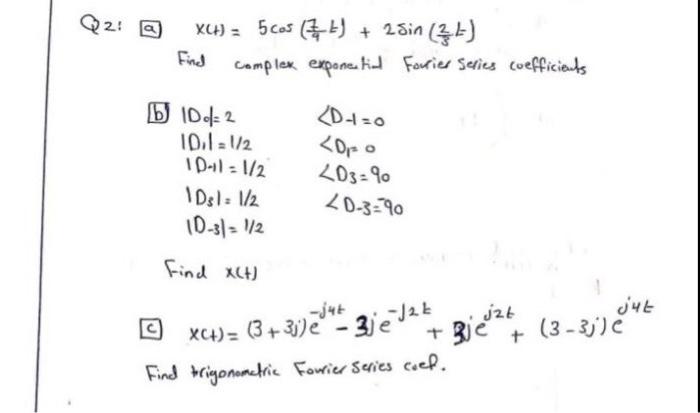 Q2: a x(t) = 5cos (7/9 t) + 2sin (2/3 t)
Find complex exponential Fourier Series coefficients
b |D0|= 2 <D-1=0
|D1| = 1/2 <D1= 0
|D-1| = 1/2 <D3=90
|D3|= 1/2 <D-3=-90
|D-3|= 1/2
Find x(t)
c x(t)= (3+3j)e^-j4t - 3je^-j2t + 3je^j2t + (3-3j)e^j4t
Find trigonometric Fourier Series coef.